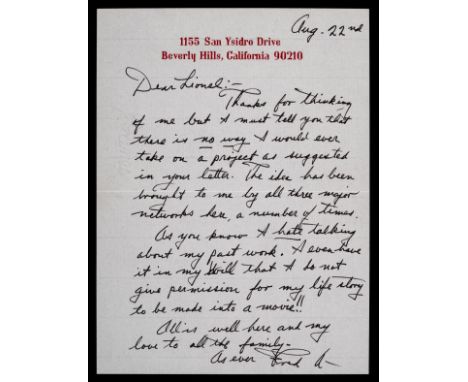 Aug. 22nd
1155 San Ysidro Drive
Beverly Hills, California 90210
Dear Lionel:-
Thanks for thinking
of me but I must tell you that
there is no way I would ever
take on a project as suggested
in your letter. The idea has been
brought to me by all three major
networks here, a number of times.
As you know I hate talking
about my past work. I even have
it in my Will that I do not
give permission for my life story
to be made into a movie!!
All is well here and my
love to all the family.
As ever Fred A—